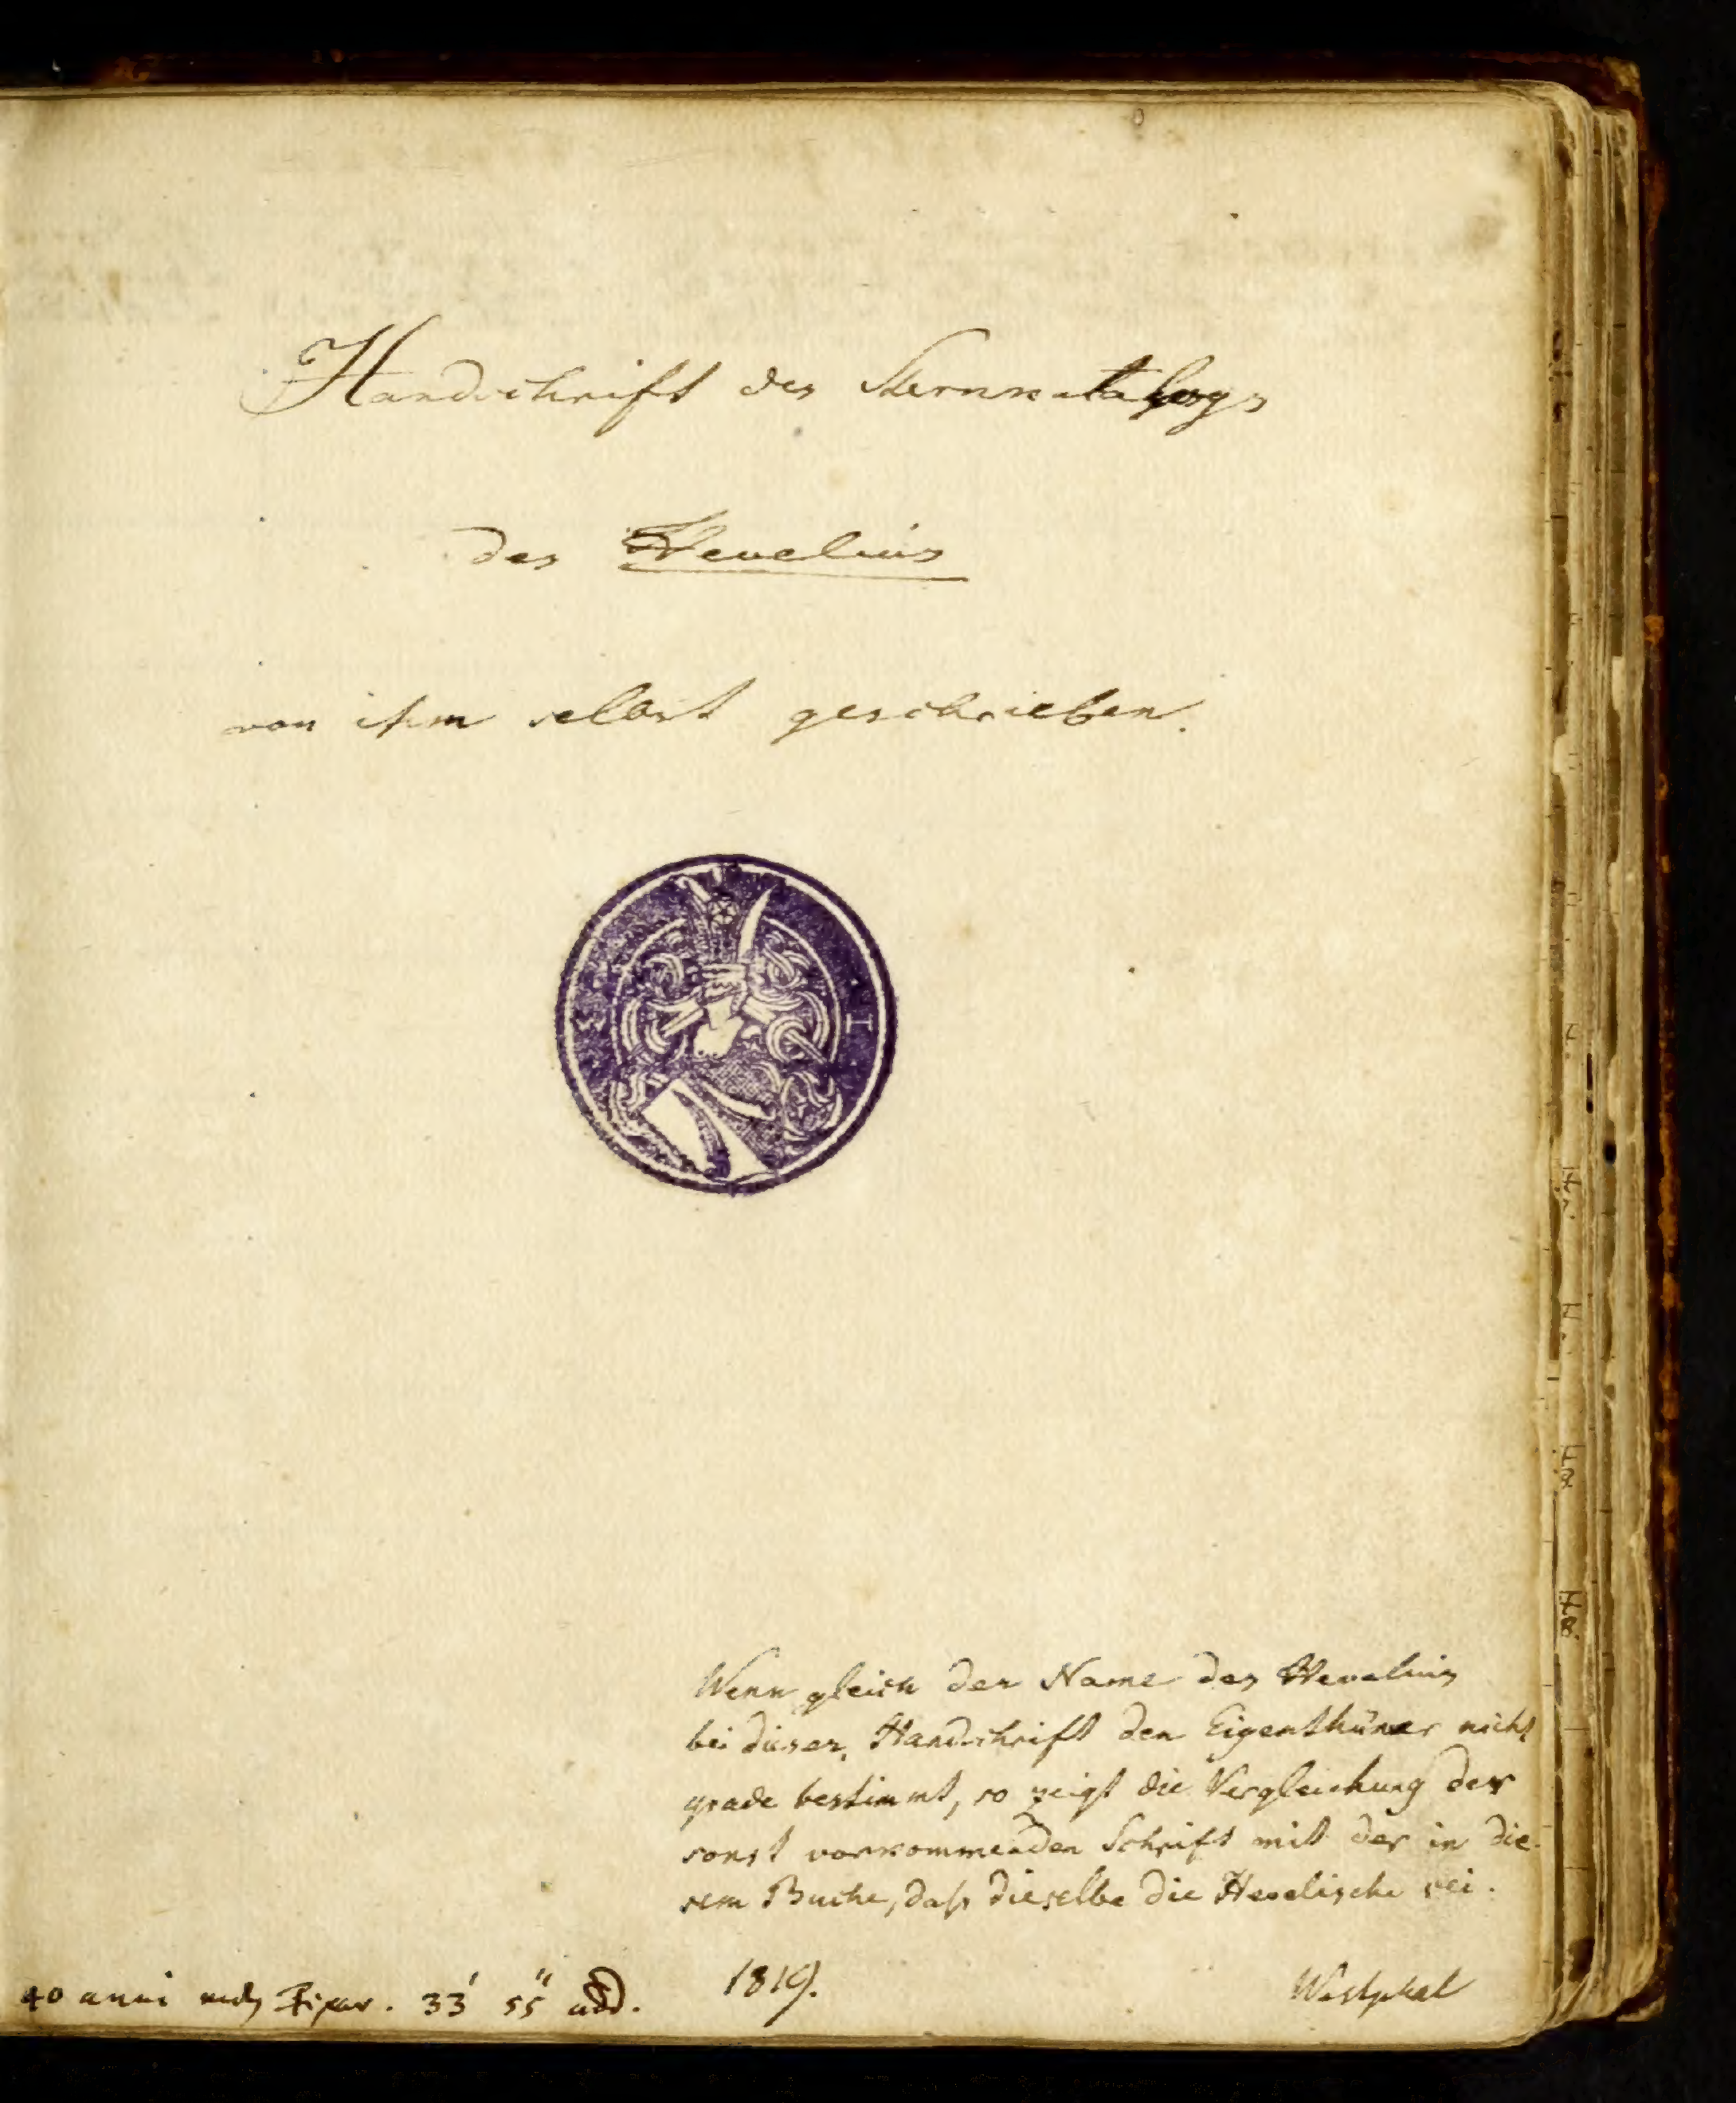 Handschrift des Sternkatalogs
des Hevelius
von ihm selbst geschrieben.
Wenn gleich der Name des Hevelius
bei dieser Handschrift den Eigenthümer nicht
grade bestimmt, so zeigt die Vergleichung der
sonst vorkommenden Schrift mit der in die-
sem Buche, daß dieselbe die Hevelische sei.
1819. Westphal
40 anni 33' 55" add.